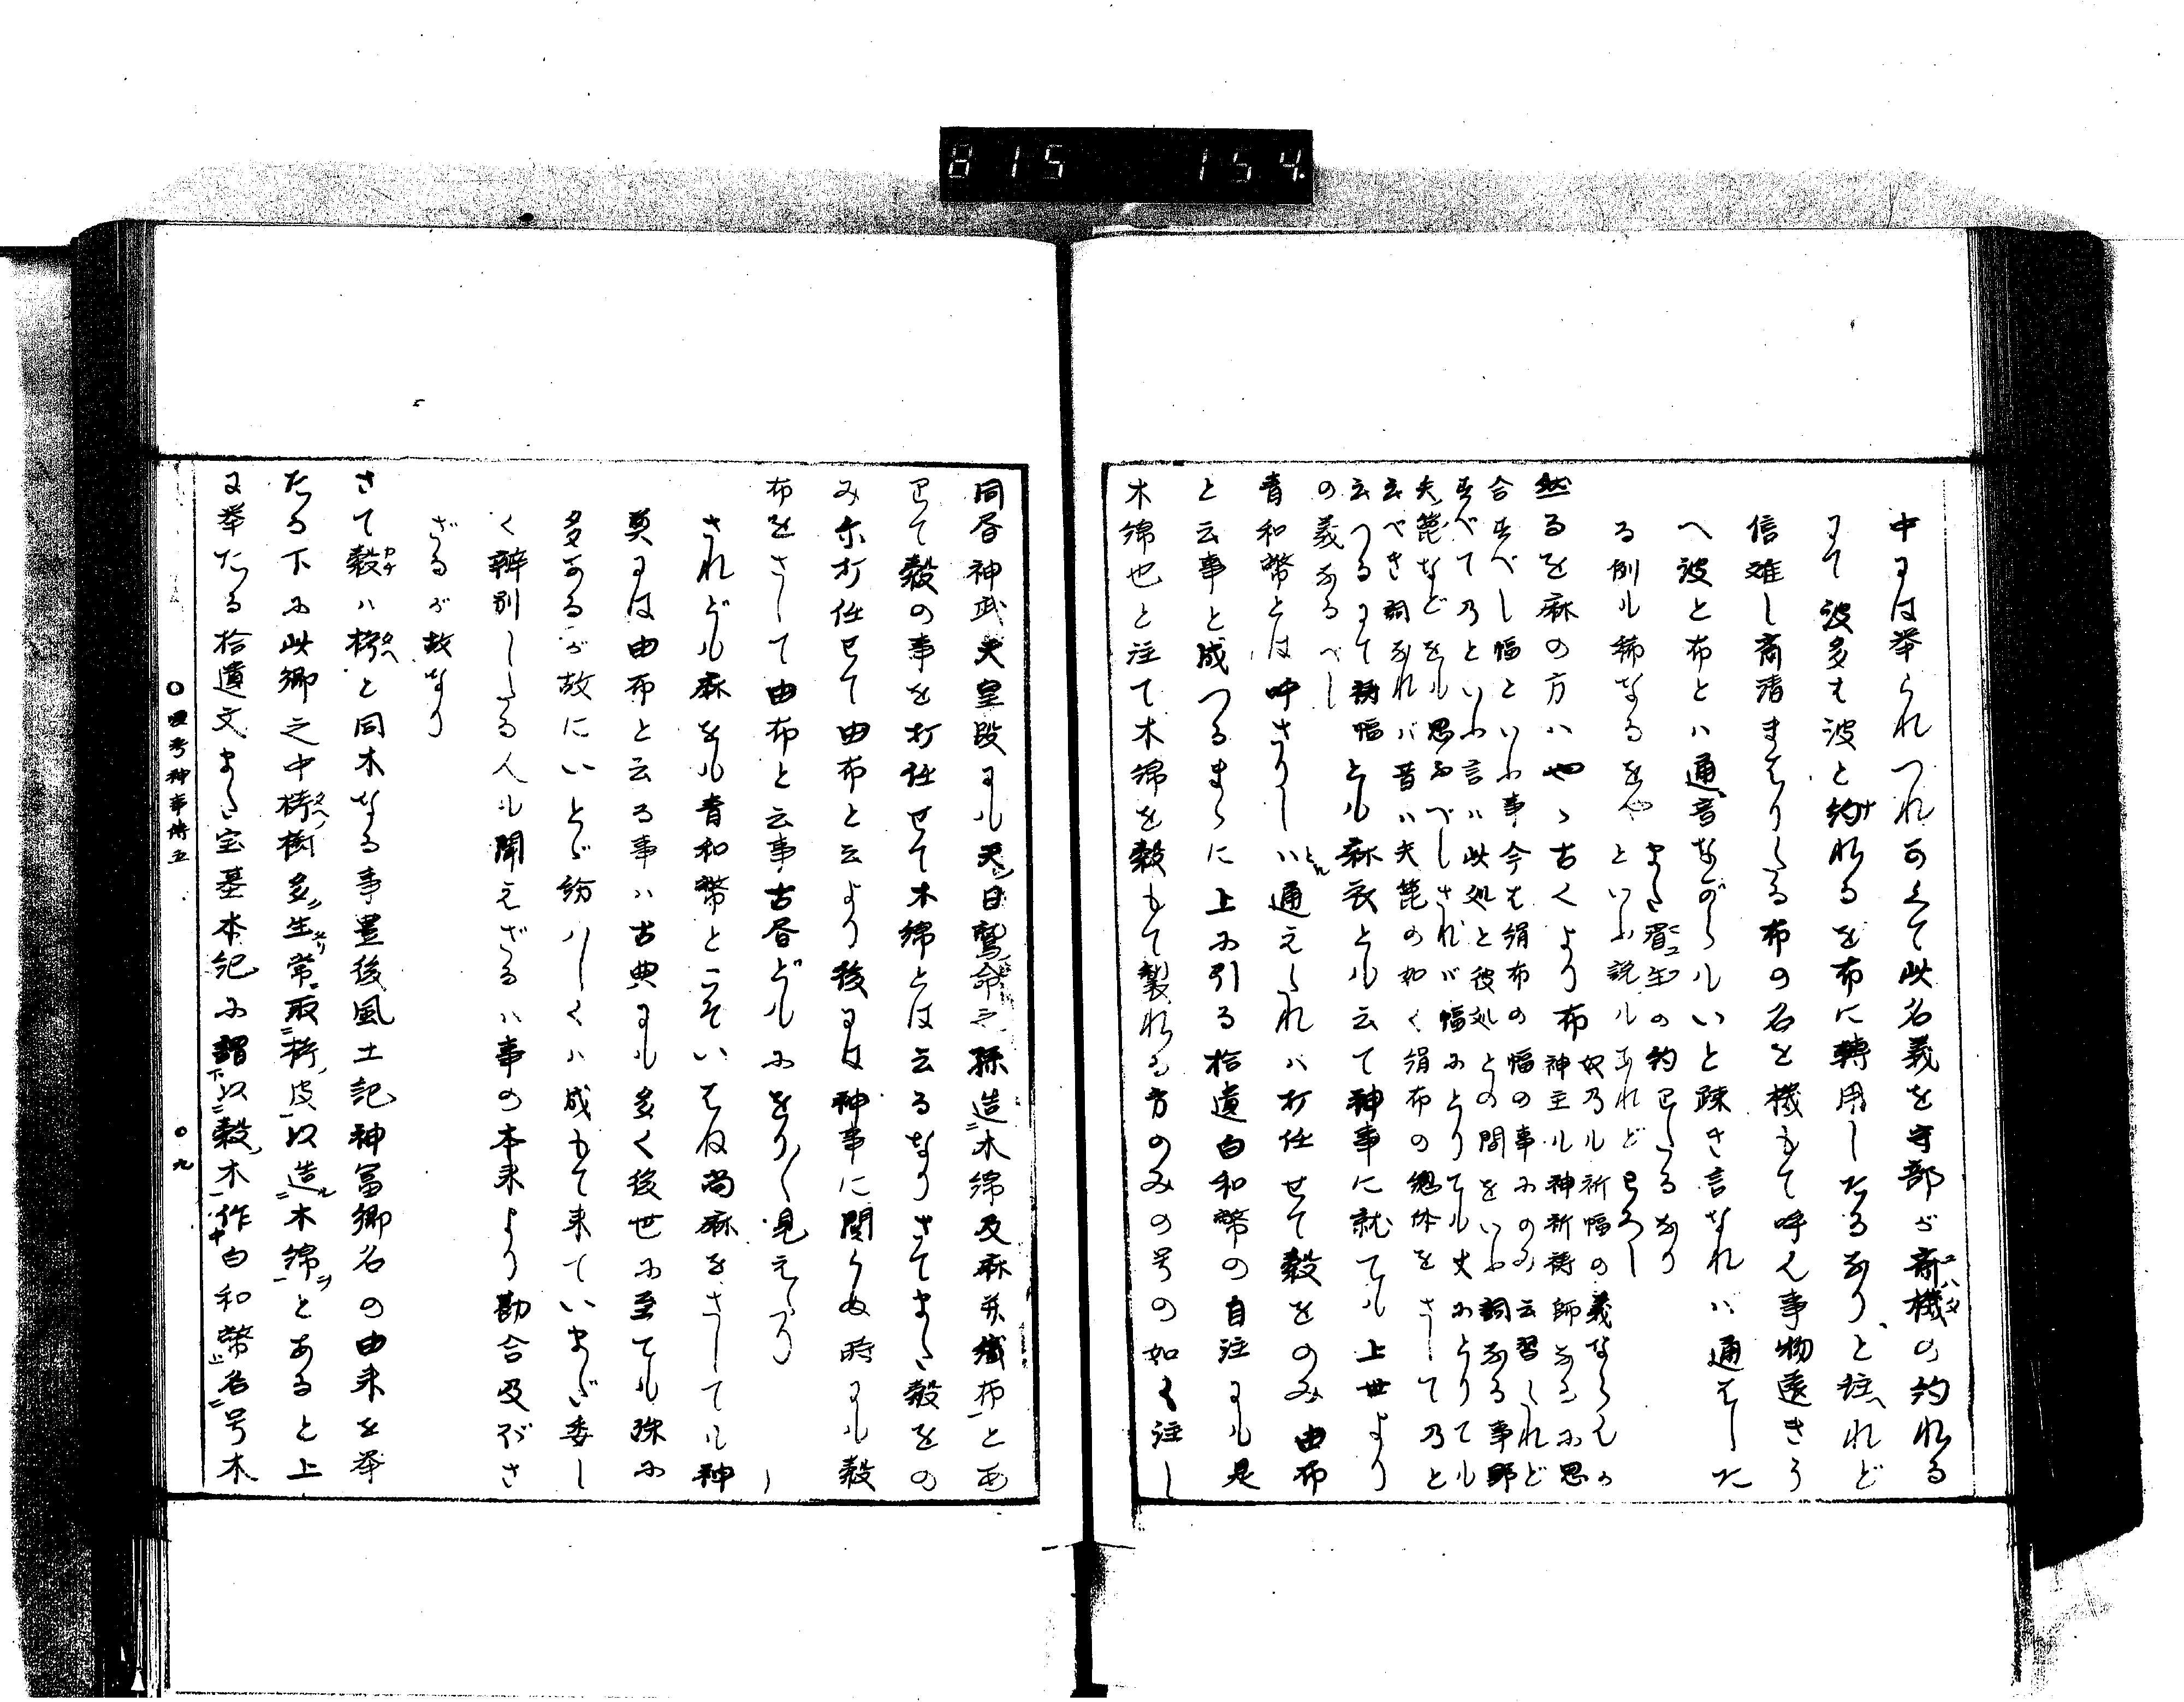 815 154
中には挙られつれかくて此名義を守部が斎機の約れる
ユハタ
にて波多を波と約れるを布に轉用したるなりと註れど
信難し斎清まはりたる布の名を機もて呼ん事物遠きう
へ波と布とハ通音ながらいと疎き言なれハ通はした
る例も稀なるをや
といふ説もあれどわろし
然るを麻の方ハやゝ古くより布
神主も神祈祷師なるに思
合すべし幅といふ事今は絹布の幅の事にのみ云習したれど
すべて乃といふ言ハ此処と彼処との間をいふ詞なる事野
矢篦などをも思ふべしされバ幅にとりても丈にとりても
云べき詞なれバ昔ハ矢篦の如く絹布の惣体をさして乃と
云つるにて祷幅とも麻衣とも云て神事に就ても上世より
の義なるべし
青和幣とは呼さりし
ハ通えたれバ打任せて穀をのみ由布
と云事と成つるまゝに上に引る拾遺白和幣の自注にも是
木綿也と注て木綿を穀もて製れる方のみの号の如く注し
同書神武天皇段にも天日鷲命之孫造木綿及麻并織布とあ
りて穀の事を打任せて木綿とは云るなりさてまた穀をの
み尓打任せて由布と云より後には神事に関らぬ時にも穀
布をさして由布と云事古書どもにをり／＼見えたり
されども麻をも青和幣とこそいはね尚麻をさしても神
異には由布と云る事ハ古典にも多く後世に至ても殊に
多かるが故にいとど紛ハしくハ成もて来ていまだ委し
く辨別したる人も聞えざるハ事の本来より勘合及ばさ
ざるが故なり
さて穀ハ栲と同木なる事豊後風土記神富郷名の由来を挙
カチ
タヘ
たる下に此郷之中栲樹多生常取栲皮以造木綿とあると上
に挙たる拾遺文また宝基本紀に謂以穀木作白和幣名号木
神事傳五
九